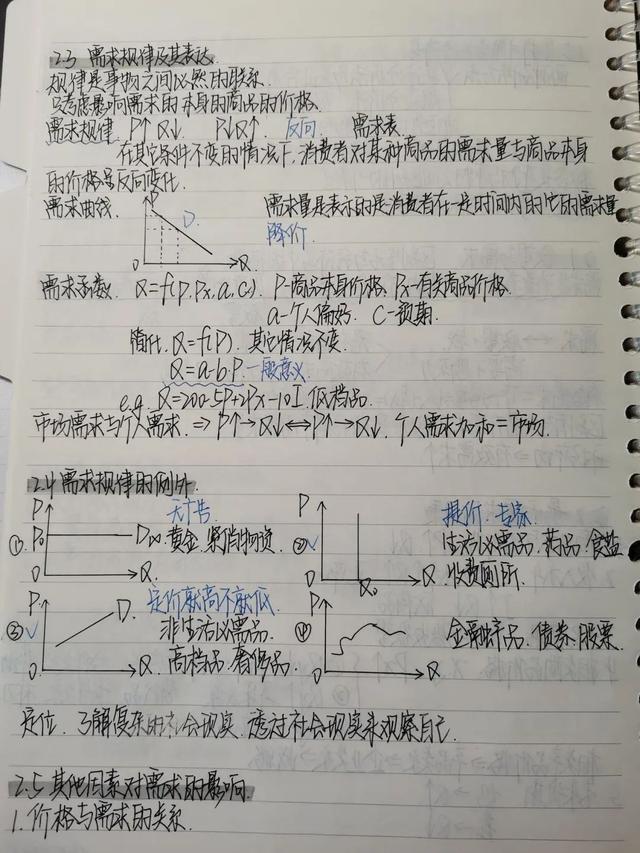 2.3 需求规律及其表达.
规律是事物之间必然的联系.
只考虑影响需求的本身的商品的价格.
需求规律. P↑ Q↓. P↓Q↑. 反向. 需求表.
在其它条件不变的情况下,消费者对某种商品的需求量与商品本身
的价格呈反向变化.
需求曲线. P D. 需求量是表示的是消费者在一定时间内的
降价.
0 Q.
需求函数. Q=f(P,Px,a,c). P-商品本身价格. Px-有关商品价格.
a-个人偏好. C-预期.
简化. Q=f(P). 其它情况不变.
Q=a-b·P. 一般意义
e.g. Q=200-5P+2Px-10I. 低档品.
市场需求与个人需求. ⇒ P↑→Q↓⇔P↑→Q↓. 个人需求加和=市场.
2.4 需求规律的例外.
① P. P0 D∞. 0 Q. 无广告 黄金.紧俏物资
② P 0 Q0 Q. 提价.专家 生活必需品.药品.食盐 收费厕所.
③ P. D. 0 Q. 定价就高不就低 非生活必需品 高档品.奢侈品.
④ P. 0 Q 金融产品.债券.股票.
定位. 了解复杂的社会现实.透过社会现实来观察自己.
2.5 其他因素对需求的影响.
1. 价格与需求的关系.